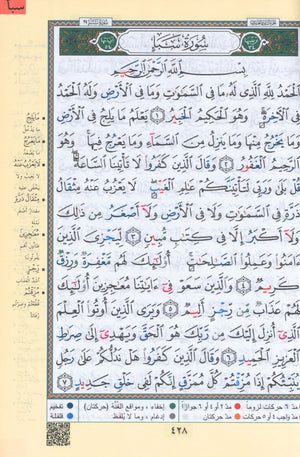 سبأ
سُورَةُ سَبَإٍ
بِسْمِ اللَّهِ الرَّحْمَٰنِ الرَّحِيمِ
الْحَمْدُ لِلَّهِ الَّذِي لَهُ مَا فِي السَّمَاوَاتِ وَمَا فِي الْأَرْضِ وَلَهُ الْحَمْدُ
فِي الْآخِرَةِ وَهُوَ الْحَكِيمُ الْخَبِيرُ ١ يَعْلَمُ مَا يَلِجُ فِي الْأَرْضِ
وَمَا يَخْرُجُ مِنْهَا وَمَا يَنزِلُ مِنَ السَّمَاءِ وَمَا يَعْرُجُ فِيهَا وَهُوَ
الرَّحِيمُ الْغَفُورُ ٢ وَقَالَ الَّذِينَ كَفَرُوا لَا تَأْتِينَا السَّاعَةُ
قُلْ بَلَىٰ وَرَبِّي لَتَأْتِيَنَّكُمْ عَالِمِ الْغَيْبِ لَا يَعْزُبُ عَنْهُ مِثْقَالُ
ذَرَّةٍ فِي السَّمَاوَاتِ وَلَا فِي الْأَرْضِ وَلَا أَصْغَرُ مِن ذَٰلِكَ
وَلَا أَكْبَرُ إِلَّا فِي كِتَابٍ مُّبِينٍ ٣ لِّيَجْزِيَ الَّذِينَ
آمَنُوا وَعَمِلُوا الصَّالِحَاتِ أُولَٰئِكَ لَهُم مَّغْفِرَةٌ وَرِزْقٌ
كَرِيمٌ ٤ وَالَّذِينَ سَعَوْ فِي آيَاتِنَا مُعَاجِزِينَ أُولَٰئِكَ
لَهُمْ عَذَابٌ مِّن رِّجْزٍ أَلِيمٌ ٥ وَيَرَى الَّذِينَ أُوتُوا الْعِلْمَ
الَّذِي أُنزِلَ إِلَيْكَ مِن رَّبِّكَ هُوَ الْحَقَّ وَيَهْدِي إِلَىٰ صِرَاطِ
الْعَزِيزِ الْحَمِيدِ ٦ وَقَالَ الَّذِينَ كَفَرُوا هَلْ نَدُلُّكُمْ عَلَىٰ رَجُلٍ
يُنَبِّئُكُمْ إِذَا مُزِّقْتُمْ كُلَّ مُمَزَّقٍ إِنَّكُمْ لَفِي خَلْقٍ جَدِيدٍ ٧
مَا يَلِجُ
مَا يَعْرُجُ
لَا يَعْزُبُ عَنْهُ
مِثْقَالُ ذَرَّةٍ
مُعَاجِزِينَ
رِجْزٍ
مُزِّقْتُمْ
مدّ ٦ حركات لزوماً مدّ ٢ أو ٤ أو ٦ جوازاً إخفاء، ومواقع الغُنَّة (حركتان) تفخيم
مدّ واجب ٤ أو ٥ حركات مدّ حركتان إدغام، وما لا يُلفظ قلقلة
٤٢٨